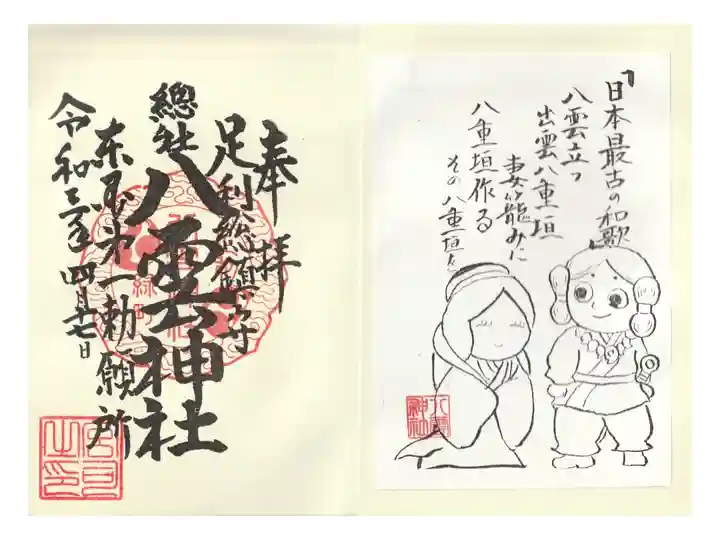 「日本最古の和歌」
八雲立つ
出雲八重垣
妻籠みに
八重垣作る
その八重垣を
奉拝
足利総鎮守
總社
八雲神社
東国第一勅願所
令和三年四月十七日
緑町
八雲
神社
宮司
之印